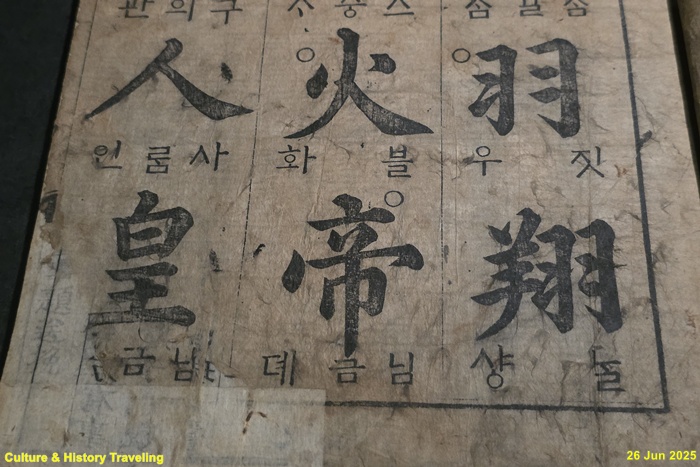 羽
짓 우
翔
놀 샹
火
블 화
帝
님금 뎨
人
사롬 인
皇
님금
Culture & History Traveling
26 Jun 2025